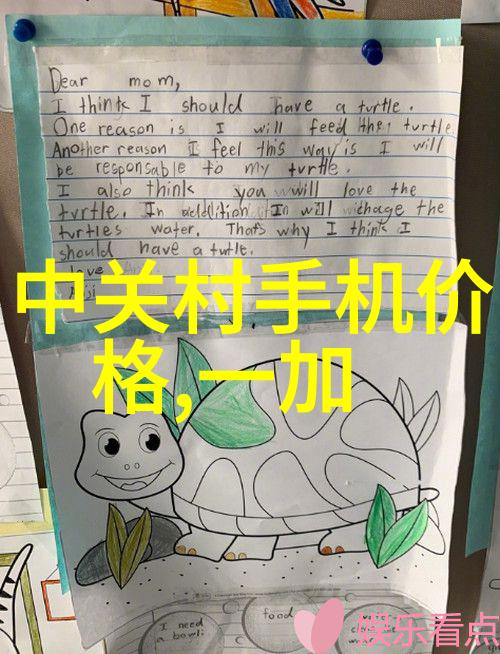 Dear mom,
I think I should have a turtle.
One reason is I will feed the turtle.
Another reason I feel this way is I will
be responsable to my turtle.
I also think you will love the
turtle. In addition I will chage the
turtles water. Thats why I think I
should have a turtle.
love
中关村手机价
格,一加
I need
a bowl
food
娱乐看点